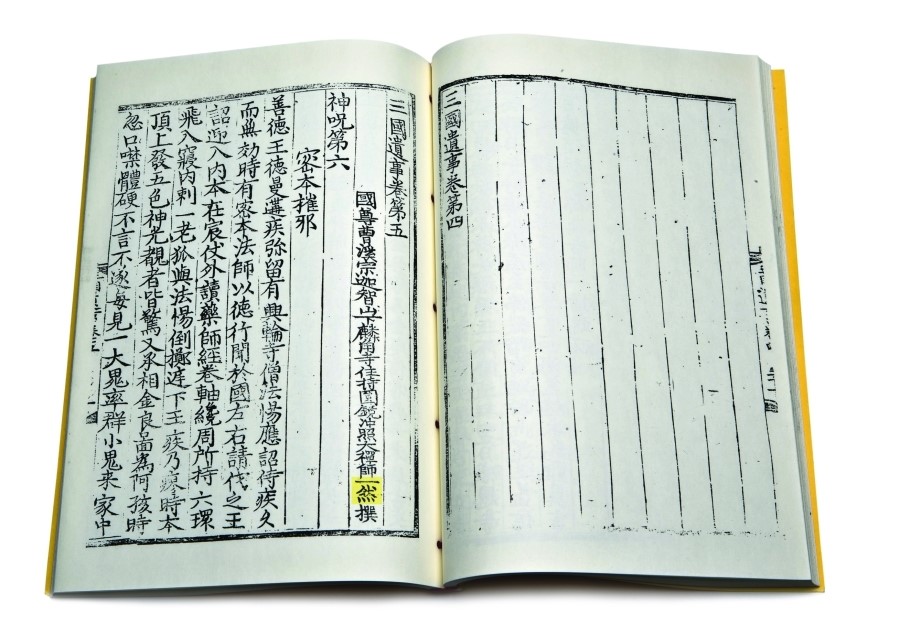 三國遺事卷第四
三國遺事卷第五
國尊曹溪宗迦智山下麟角寺住持圓鏡冲照大禪師一然撰
神呪第六
密本摧邪
善德王德曼遘疾弥留有興輪寺僧法惕應詔侍疾久
而無効時有密本法師以德行聞於國左右請代之王
詔迎入內本在宸仗外讀藥師經卷軸纔周所持六環
飛入寢內刺一老狐與法惕倒擲庭下王疾乃瘳時本
頂上發五色神光覩者皆驚又承相金良啚爲阿孩時
忽口噤體硬不言不遂每見一大鬼率群小鬼來家中